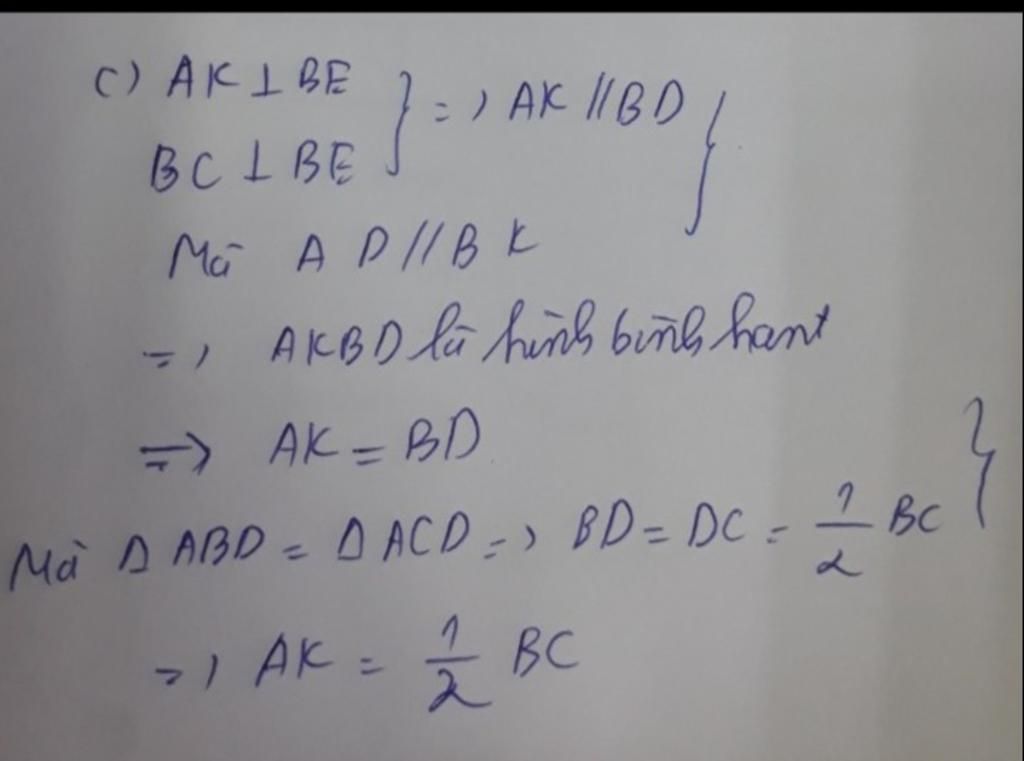 c) AK ⊥ BE
BC ⊥ BE } => AK // BD }
Mà AD // BK
=> AKBD là hình bình hành
=> AK = BD
Mà Δ ABD = Δ ACD => BD = DC = 1/2 BC }
=> AK = 1/2 BC